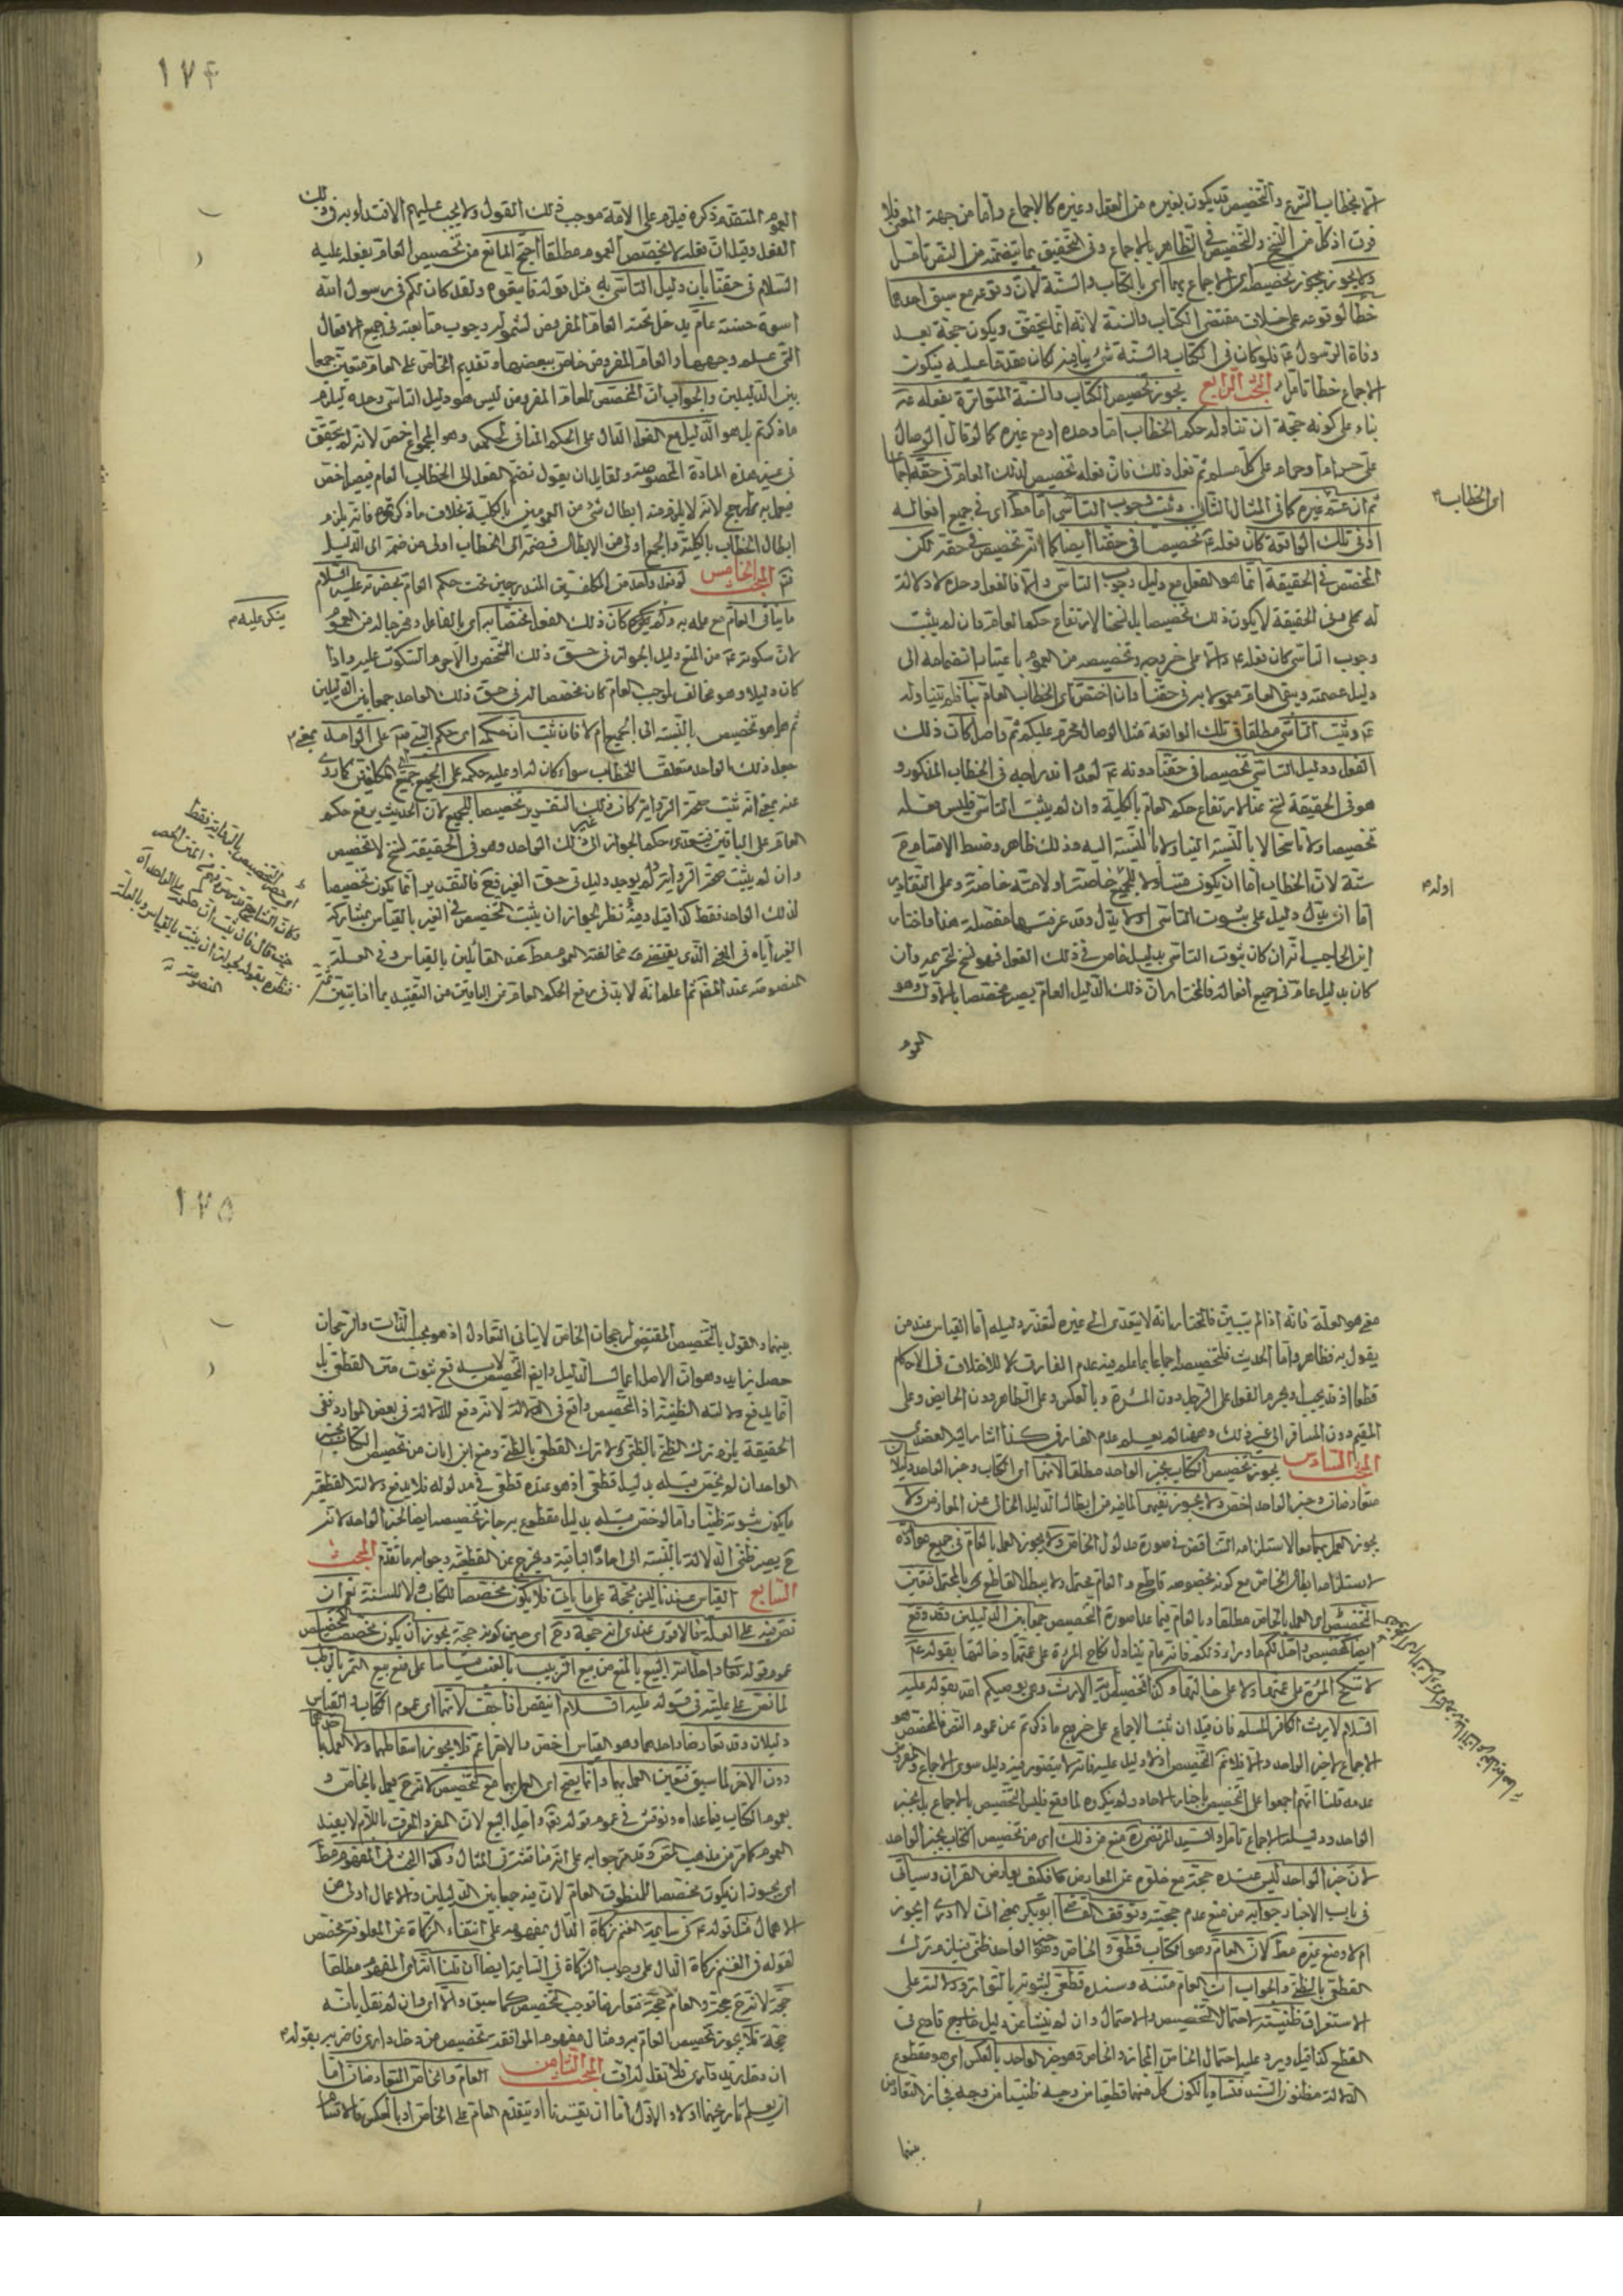 الا بخطاب الشرع والتخصيص قد يكون بغيره من العقل وغيره كالاجماع واما من جهة المعنى فلا
فرق اذ كل من النسخ والتخصيص في الظاهر بالاجماع وفي التحقيق بما يتضمنه من النص تأمل
ولا يجوز تخصيصه اى الاجماع بهما اى بالكتاب والسنة لان وقوعه مع سبق احدهما
خطأ لوقوعه على خلاف مقتضى الكتاب والسنة لانه انما يتحقق ويكون حجة بعد
وفاة الرسول ع فلو كان في الكتاب والسنة شئ ينافيه كان مقدما عليه فيكون
الاجماع خطأ تأمل البحث الرابع يجوز تخصيص الكتاب والسنة المتواترة بفعله ع
بناء على كونه حجة ان تناوله حكم الخطاب اما وحده او مع غيره كما لو قال الوصال
على حرام او حرام على كل مسلم ثم فعل ذلك فان فعله تخصيص لذلك العام في حقه اجماعا
ثم ان عم غيره كما في المثال الثاني وثبت وجوب التأسى اما مط اى في جميع افعاله
او في تلك الواقعة كان فعله ع تخصيصا في حقنا ايضا كما انه تخصيص في حقه لكن
المخصص في الحقيقة انما هو الفعل مع دليل وجوب التأسى والا فالفعل وحده لا دلالة
له على وفى الحقيقة لا يكون ذلك تخصيصا بل نسخا لارتفاع حكم العام وان لم يثبت
وجوب التأسى كان فعله ع دالا على خروجه وتخصيصه من العموم باعتبار انضمامه الى
دليل عصمته وبقى العام معمولا به في حقنا وان اختص اى الخطاب العام بنا فلم يتناوله
ع وثبت التأسى مطلقا او في تلك الواقعة مثل الوصال محرم عليكم ثم واصل كان ذلك
الفعل ودليل التأسى تخصيصا في حقنا دونه ع لعدم اندراجه في الخطاب المذكور و
هو في الحقيقة نسخ عنا لارتفاع حكم العام بالكلية وان لم يثبت التأسى فليس فعله
تخصيصا ولا ناسخا لا بالنسبة الينا ولا بالنسبة اليه وذلك ظاهر وضبط الاقسام
ستة لان الخطاب اما ان يكون متناولا للجميع او له خاصة او لامته خاصة وعلى التقادير
اما ان يدل دليل على ثبوت التأسى او لا يدل وقد عرفتها مفصلة هذا واختار
ابن الحاجب انه ان كان ثبوت التأسى بدليل خاص في ذلك الفعل فهو نسخ لتحريمه وان
كان بدليل عام في جميع افعاله فالمختار ان ذلك الدليل العام يصير مخصصا بالاول وهو
العموم
اى الخطاب
اوله
١٧۴
العموم المتقدم ذكره فيلزم على الامة موجب ذلك القول ولا يجب عليهم الاقتداء به في ذلك
الفعل وقيل ان فعله لا يخصص العموم مطلقا احتج المانع من تخصيص العام بفعله عليه
السلام في حقنا بان دليل التأسى به مثل قوله فاتبعوه ولقد كان لكم في رسول الله
اسوة حسنة عام يدخل تحته العام المفروض لشموله وجوب متابعته في جميع الافعال
التى علم وجهها والعام المفروض خاص ببعضها وتقديم الخاص على العام متعين جمعا
بين الدليلين والجواب ان المخصص للعام المفروض ليس هو دليل التأسى وحده ليلزم
ما ذكرتم بل هو الدليل مع الفعل الدال على الحكم المنافى لحكمه وهو المجموع اخص لانه لم يتحقق
في غير هذه المادة المخصوصة ولقايل ان يقول نضم الفعل الى الخطاب العام فيصير اخص
فيعمل به ويترجح لانه لا يلزم منه ابطال شئ من العمومين بالكلية بخلاف ما ذكرتم فانه يلزم
ابطال الخطاب بالكلية والجمع اولى من الابطال فضمه الى الخطاب اولى من ضمه الى الدليل
تم البحث الخامس لو فعل واحد من المكلفين المندرجين تحت حكم العام بحضرته عليه السلام
ما ينافى العام مع علمه به ولم ينكره كان ذلك الفعل مختصا به اى بالفاعل ومخرجا له من العموم
لان سكوته ع من المنع دليل الجواز في حق ذلك الشخص والا حرم السكوت عليه واذا
كان دليلا وهو مخالف لموجب العام كان مخصصا له في حق ذلك الواحد جمعا بين الدليلين
ثم هل هو تخصيص بالنسبة الى الجميع ام لا فان ثبت ان حكمه اى حكم النبى ص على الواحد بمعنى
جعل ذلك الواحد متعلقا للخطاب سواء كان له او عليه حكمه على الجميع جميع المكلفين كما روى
عنه بمعنى انه ثبت صحة الرواية كان ذلك التقرير تخصيصا للجميع لان الحديث يرفع حكم
العام على الباقين فيتعدى حكم الجواز الى غير ذلك الواحد وهو في الحقيقة نسخ لا تخصيص
وان لم يثبت صحة الرواية ولم يوجد دليل في حق الغير فع فالتقدير انما يكون تخصيصا
لذلك الواحد فقط كذا قيل وفيه نظر لجواز ان يثبت التخصيص في الغير بالقياس بمشاركة
الغير اياه في المعنى الذى يقتضى مخالفة العموم مط عند القائلين بالقياس وفي العلة
المنصوصة عند المقر ثم اعلم انه لا بد في رفع الحكم العام من الباقين من التقييد بما اذا تبين
ينكر عليه
اى حصر التخصيص بالرواية فقط
حيث قال فان ثبت ان حكمه على الواحد اه
المنصوصة
معنى هو العلة فانه اذا لم يتبين فالمختار انه لا يتعدى الى غيره لتعذر دليله اما القياس عند من
يقول به فظاهر واما الحديث فلتخصيصه اجماعا بما علم فيه عدم الفارق للاختلاف في الاحكام
قطعا اذ قد يجب ويحرم الفعل على الرجل دون المرأة وبالعكس وعلى الطاهر دون الحايض وعلى
المقيم دون المسافر الى غير ذلك وههنا لم يعلم عدم الفارق كذا اشار اليه العضدى
البحث السادس يجوز تخصيص الكتاب بخبر الواحد مطلقا لانهما اى الكتاب وخبر الواحد دليلان
متعارضان وخبر الواحد اخص ولا يجوز نفيهما لما فيه من ابطال الدليل الخالى عن المعارض ولا
يجوز العمل بهما معا لاستلزامه التناقض في صورة مدلول الخاص ولا يجوز العمل بالعام في جميع موارده
لاستلزامه ابطال الخاص مع كونه بخصوصه قاطع والعام محتمل ولا يبطل القاطع بالمحتمل فتعين
التخصيص اى العمل بالخاص مطلقا وبالعام فيما عدا صورة التخصيص جمعا بين الدليلين وقد وقع
ايضا تخصيص واحل لكم ما وراء ذلكم فانه عام يتناول نكاح المرأة على عمتها وخالتها بقوله ع
لا تنكح المرأة على عمتها ولا على خالتها وكذا تخصيص آية الارث وهى يوصيكم الله بقوله عليه
السلام لا يرث الكافر المسلم فان قيل ان ثبت الاجماع على خروج ما ذكرتم عن عموم النص فالمخصص هو
الاجماع لا خبر الواحد والا فلا يتم التخصيص اذ لا دليل عليه فانه لا يتصور فيه دليل سوى الاجماع والمفروض
عدمه قلنا انهم اجمعوا على التخصيص باخبار الاحاد ولم ينكروه لما وقع فليس التخصيص بالاجماع بل بخبر
الواحد ودليله الاجماع تأمل والسيد المرتضى ره منع من ذلك اى من تخصيص الكتاب بخبر الواحد
لان خبر الواحد ليس عنده حجة مع خلوه عن المعارض كما فكيف يعارض القرآن وسيأتى
في باب الاخبار جوابه من منع عدم حجيته وتوقف القاضى ابو بكر بمعنى انى لا ادرى ايجوز
ام لا ومنع غيره مط لان العام وهو الكتاب قطعى والخاص وهو خبر الواحد ظنى فيلزم ترك
القطعى بالظنى والجواب ان العام متنه وسنده قطعى لثبوته بالتواتر ودلالته على
الاستغراق ظنية لاحتمال التخصيص والاحتمال وان لم ينشأ عن دليل خارج قادح في
القطع كذا قيل ويرد عليه احتمال الخاص المجاز والخاص وهو خبر الواحد بالعكس اى هو مقطوع
الدلالة مظنون السند فتساويا لكون كل منهما قطعيا من وجه ظنيا من وجه فجاز التعارض
بينهما
١٧۵
بينهما والقول بالتخصيص المقتضى لرجحان الخاص لا ينافى التعادل اذ هو بحسب الذات والرجحان
حصل بزايد وهو ان الاصل اعمال الدليل وايض التخصيص لا يدفع ثبوت متن القطعى بل
انما يدفع دلالته الظنية اذ التخصيص واقع في الدلالة لانه دفع للدلالة في بعض الموارد ففى
الحقيقة يلزم ترك الظنى بالظنى لا ترك القطعى بالظنى ومنع ابن ابان من تخصيص الكتاب بخبر
الواحد ان لم يخص قبله بدليل قطعى اذ هو عنده قطعى في مدلوله فلا يدفع دلالته القطعية
ما يكون ثبوته ظنيا واما لو خص قبله بدليل مقطوع به جاز تخصيصه ايضا بخبر الواحد لانه
ح يصير ظنى الدلالة بالنسبة الى احاده الباقية ويخرج عن القطعية وجوابه ما تقدم البحث
السابع القياس عندنا ليس بحجة على ما يأتى فلا يكون مخصصا للكتاب ولا للسنة نعم ان
نص فيه على العلة فالاقوى عندى انه حجة وح اى حين كونه حجة يجوز ان يكون مخصصا كتخصيص
عموم قوله تعالى واحل الله البيع بالمنع من بيع الزبيب بالعنب قياسا على منع بيع التمر بالرطب
لما نص على علته في قوله عليه السلام اينقص اذا جف لانهما اى عموم الكتاب والقياس
دليلان وقد تعارضا واحدهما وهو القياس اخص والاخر اعم فلا يجوز اسقاطهما ولا العمل باحدهما
دون الاخر لما سبق فتعين العمل بهما وانما يصح اى العمل بهما مع التخصيص لانه ح يعمل بالخاص و
بعموم الكتاب فيما عداه ونوقش في عموم قوله تعالى واحل البيع لان المفرد المعرف باللام لا يفيد
العموم كما مر من مذهب المقر وقد مر جوابه على انه مناقشة في المثال وكذا البحث في المفهوم مط
اى يجوز ان يكون مخصصا للمنطوق العام لان فيه جمعا بين الدليلين والاعمال اولى من
الاهمال مثل قوله ع في سايمة الغنم زكاة الدال بمفهومه على انتفاء الزكاة عن المعلوفة مخصص
لقوله في الغنم زكاة الدال على وجوب الزكاة في السايمة ايضا ان قلنا انه اى المفهوم مطلقا
حجة لانه ح حجة والعام حجة تعارضا فوجب التخصيص كما سبق والا اى وان لم نقل بانه
حجة فلا يجوز تخصيص العام به ومثال مفهوم الموافقة تخصيص من دخل دارى فاضربه بقوله
ان دخل زيد دارى فلا تقل له اف البحث الثامن العام والخاص المتعارضان اما
ان يعلم تاريخهما اولا والاول اما ان يقترنا او يتقدم العام على الخاص او بالعكس فالاقسام